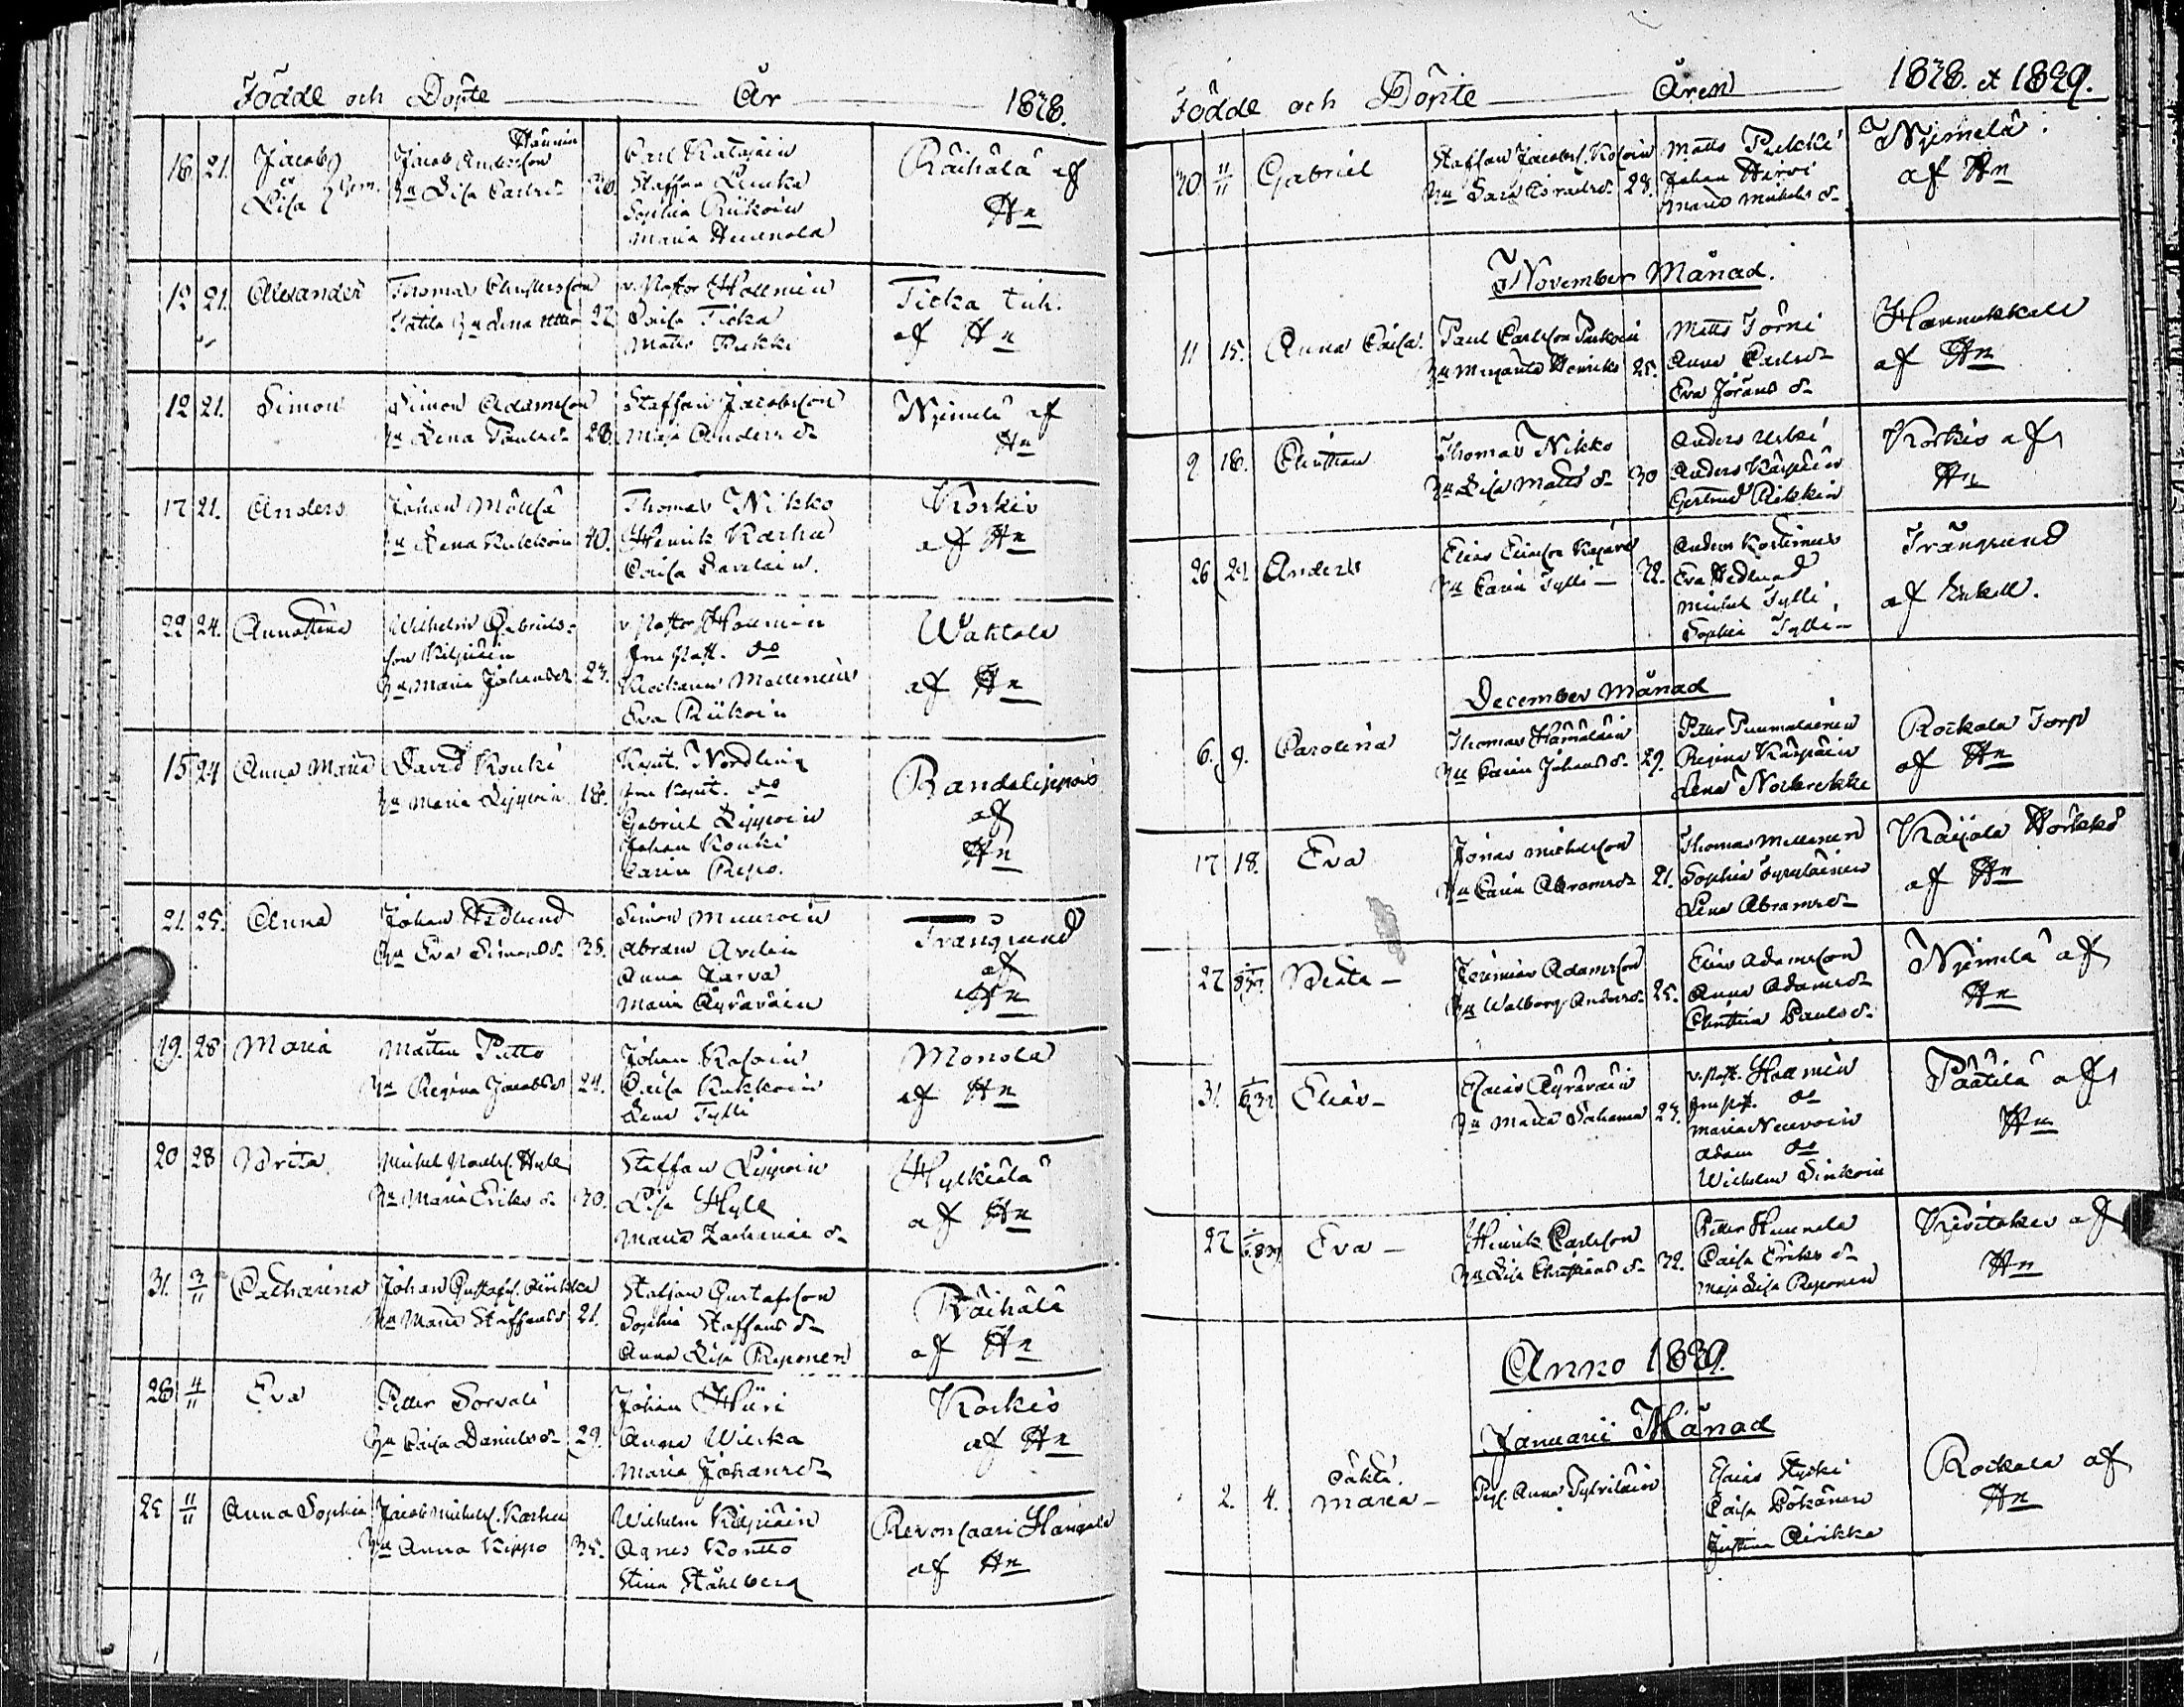 Födde och Döpte År 1838.
18. 21. Jacob
Lisa
Jacob Andersson
Hu Lisa Carlsd.
Carl Ratajain
Staffan
Sophia Riikoin
Maria
Räihälä af
Hn
12 21. Alexander
Thomas
Hu Lena 22
v. Pastor Hallmén
Caisa Ticka
Matts Pukki
Ticka
af Hn
12 21. Simon
Simon Adamsson
Hu Lena Paulsd. 28.
Staffan Jacobsson
Maja Andersd.
Njemelä af
Hn
17 21. Anders
Johan Mölsä
Hu Lena Kukkoin 40.
Thomas Nikko
Henrik Karhu
Caisa Savolain.
Korkis
af Hn
22 24. Anna Stina
Wilhelm Gabriels-
son Kilpiäin
Hu Maria Johansd. 23.
v. Pastor Hallmén
Fru Past. do
Eva Riikoin
Wahtola
af Hn
15 24 Anna Maria
David Kouki
Hu Maria Lippoin 18.
Kapit. Nordling
Fru Kapit. do
Gabriel Lippoin
Johan Kouki
Carin Repo.
Randalippois
af
Hn
21. 25. Anna
Johan Hedlund
Hu Eva Simonsd. 38.
Simon Muuroin
Abram Avelin
Anna Jarva
Maria Äyräväin
Trångsund
af
Hn
19. 28 Maria
Mårten Pitto
Hu Regina Jacobsd. 24.
Johan Rosoin
Caisa Kukkoin
Lena Tylli
Monola
af Hn
20 28 Brita
Michel Hyll
Hu Maria Eriksd. 30.
Staffan Lippoin
Lisa Hyll
Maria Zachariæ d.
Hylkiälä
af Hn
31. 3/11 Catharina
Johan Gustafs. Airikka
Hu Maria Staffansd. 21.
Staffan Gustafsson
Sophia Staffansd.
Anna Lisa Reponen
Räihälä
af Hn
28 4/11 Eva
Petter Sorvali
Hu Caisa Danielsd. 29.
Johan Hiiri
Anna Wilska
Maria Johansd.
Korkis
af Hn
25 11/11 Anna Sophia
Jacob Michels. Karhu
Hu Anna Kippo 35.
Wilhelm Kilpiäin
Agnes Kontto
Stina Ståhlberg
Revonsaari Hangala
af Hn
Födde och Döpte Åren 1838. et 1839.
30. 11/11 Gabriel
Staffan Jacobs. Rosoin
Hu Sara Israelsd. 28.
Matts Pukki
Johan Hirvi
Maria Michelsd.
Njemelä
af Hn
November Månad.
11 15. Anna Caisa.
Paul Carlsson
Hu Margareta Henriks 25.
Matts Törni
Anna Carlsd.
Eva Jöransd.
Hannukkala
af Hn
9 18. Christian
Thomas Nikko
Hu Lisa Mattsd. 30
Anders Uski
Anders Karpiain
Gertrud Pekkin
Korkis af
Hn
26 29 Anders
Elias Eliasson
Hu Carin Tylli – 32.
Anders
Eva Hedlund
Michel Tylli
Sophia Tylli –
Trångsund
af Enkell.
December Månad
6. 9. Carolina
Thomas Hämäläin
Hu Carin Johansd. 29.
Petter Puumalainen
Regina Karpiain
Lena
Rockala Torp
af Hn
17 18. Eva
Jonas Michelsson
Hu Carin Abramsd. 21.
Thomas Mellanen
Sophia
Lena Abramsd.
Kaijala
af Hn
27 Beata –
Jeremias Adamsson
Hu Walborg Andersd. 25.
Elias Adamsson
Anna Adamsd.
Christina Paulsd.
Njemelä af
Hn
31. Elias –
Esaias Äyräväin
Hu Maria 23.
v. Past. Hallmén
Fru Past. do
Maria Neuvoin
Adam do
Wilhelm Sinkoin
Päätilä af
Hn
22 Eva –
Henrik Carlsson
Hu Lisa Christiansd. 32.
Petter
Caisa Eriksd.
Maja Lisa Reponen
af
Hn
Anno 1839.
Januarii Månad
2. 4. oäkta.
Maria –
Pig. Anna
Esaias
Caisa Pökänen
Justina Airikka
Rockala af
Hn